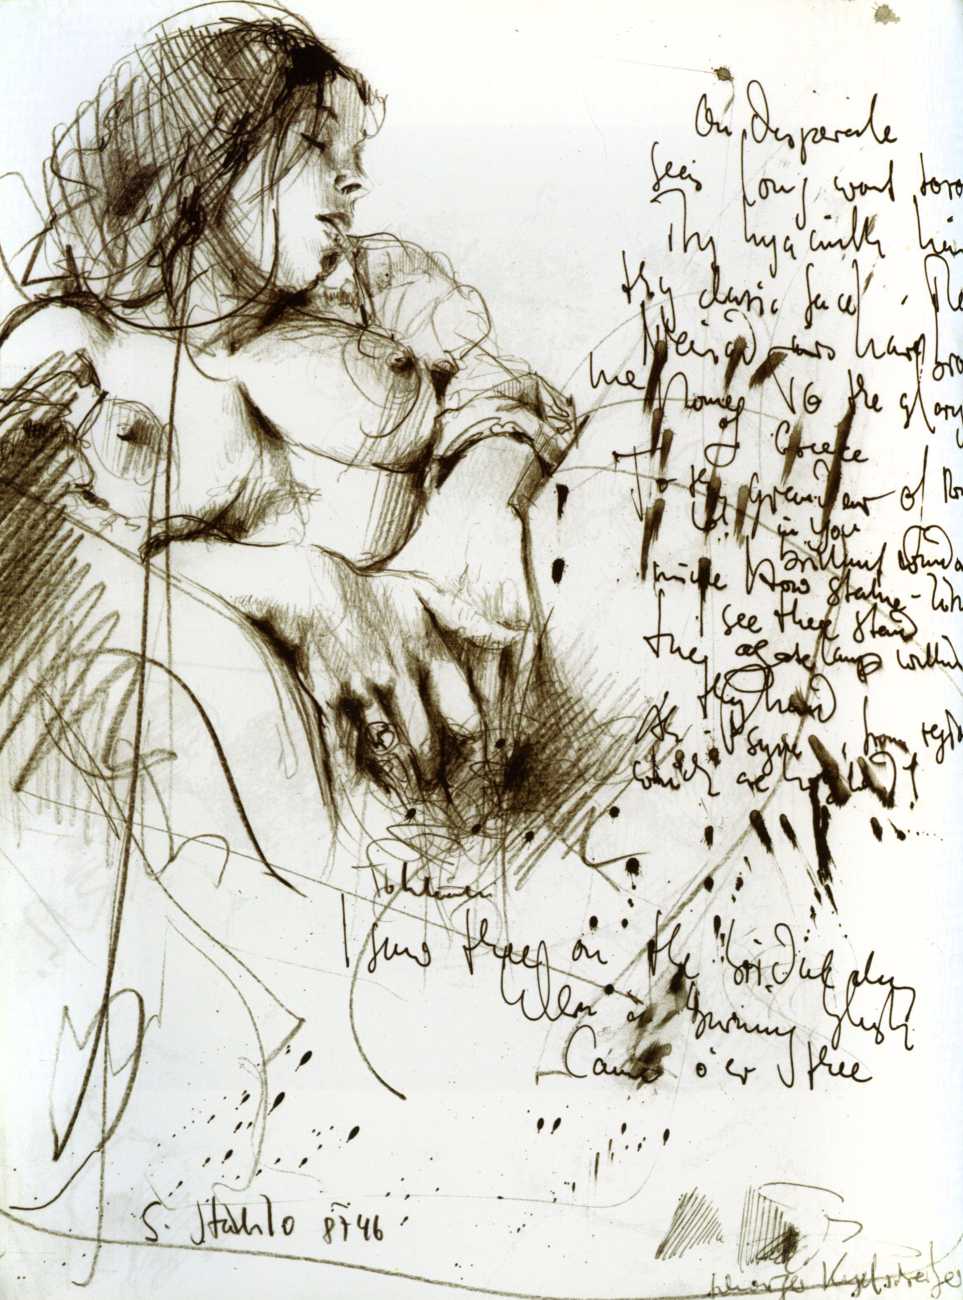 On desperate
Seas long wont to ro
Thy hyacinth hai
thy classic face, The
Naiad airs have bro
me home TO the glory
of Greece
To the grandeur of Ro
Lo! in yon
brilliant Windo
niche how statue-lik
I see thee stand
they agate lamp within
thy hand
Ah! Psyche, from regio
which are holy land!
I saw thee on the bridal day
When a burning blush
Came o'er thee
S. 8746
schwarzer Kugelschreiber